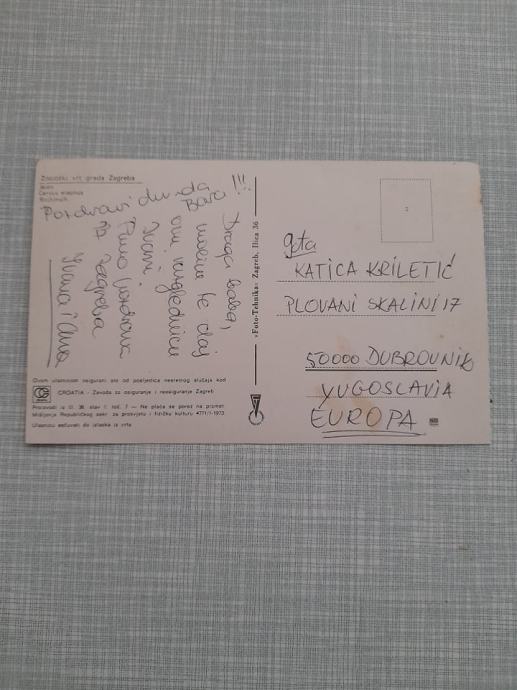 Zoološki vrt grada Zagreba
Jelen
Cervus elaphus
Rothirsch
Pozdravi dunda
Baro !!!
Draga baba,
molim te daj
ovu razglednicu
Ivani.
Puno pozdrava
iz Zagreba
Ivana i Ana
Ovom ulaznicom osigurani ste od posljedica nesretnog slučaja kod
CROATIA - Zavoda za osiguranje i reosiguranje Zagreb
Proizvodi iz čl. 36. stav 1. toč. 7 — Ne plaća se porez na promet
Mišljenje Republičkog sekr. za prosvjetu i fizičku kulturu 4771/1-1973.
Ulaznicu sačuvati do izlaska iz vrta
»Foto-Tehnika« Zagreb, Ilica 36
gđa
KATICA KRILETIĆ
PLOVANI SKALINI 17
50000 DUBROVNIK
YUGOSLAVIA
EUROPA